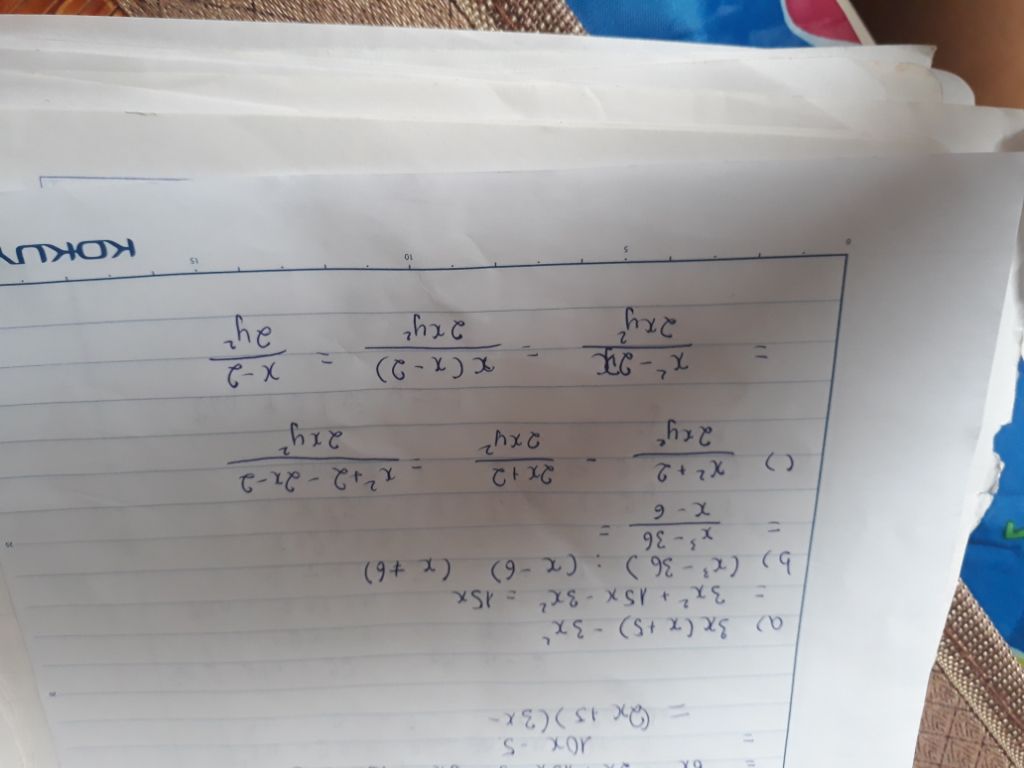 = 10x - 5
= (2x + 5)(3x -
a) 3x(x+5) - 3x²
= 3x² + 15x - 3x² = 15x
b) (x³ - 36) : (x - 6) (x ≠ 6)
= \frac{x³ - 36}{x - 6} =
c) \frac{x² + 2}{2xy²} - \frac{2x + 2}{2xy²} = \frac{x² + 2 - 2x - 2}{2xy²}
= \frac{x² - 2x}{2xy²} = \frac{x(x - 2)}{2xy²} = \frac{x - 2}{2y²}
0 5 10 15
KOKUY